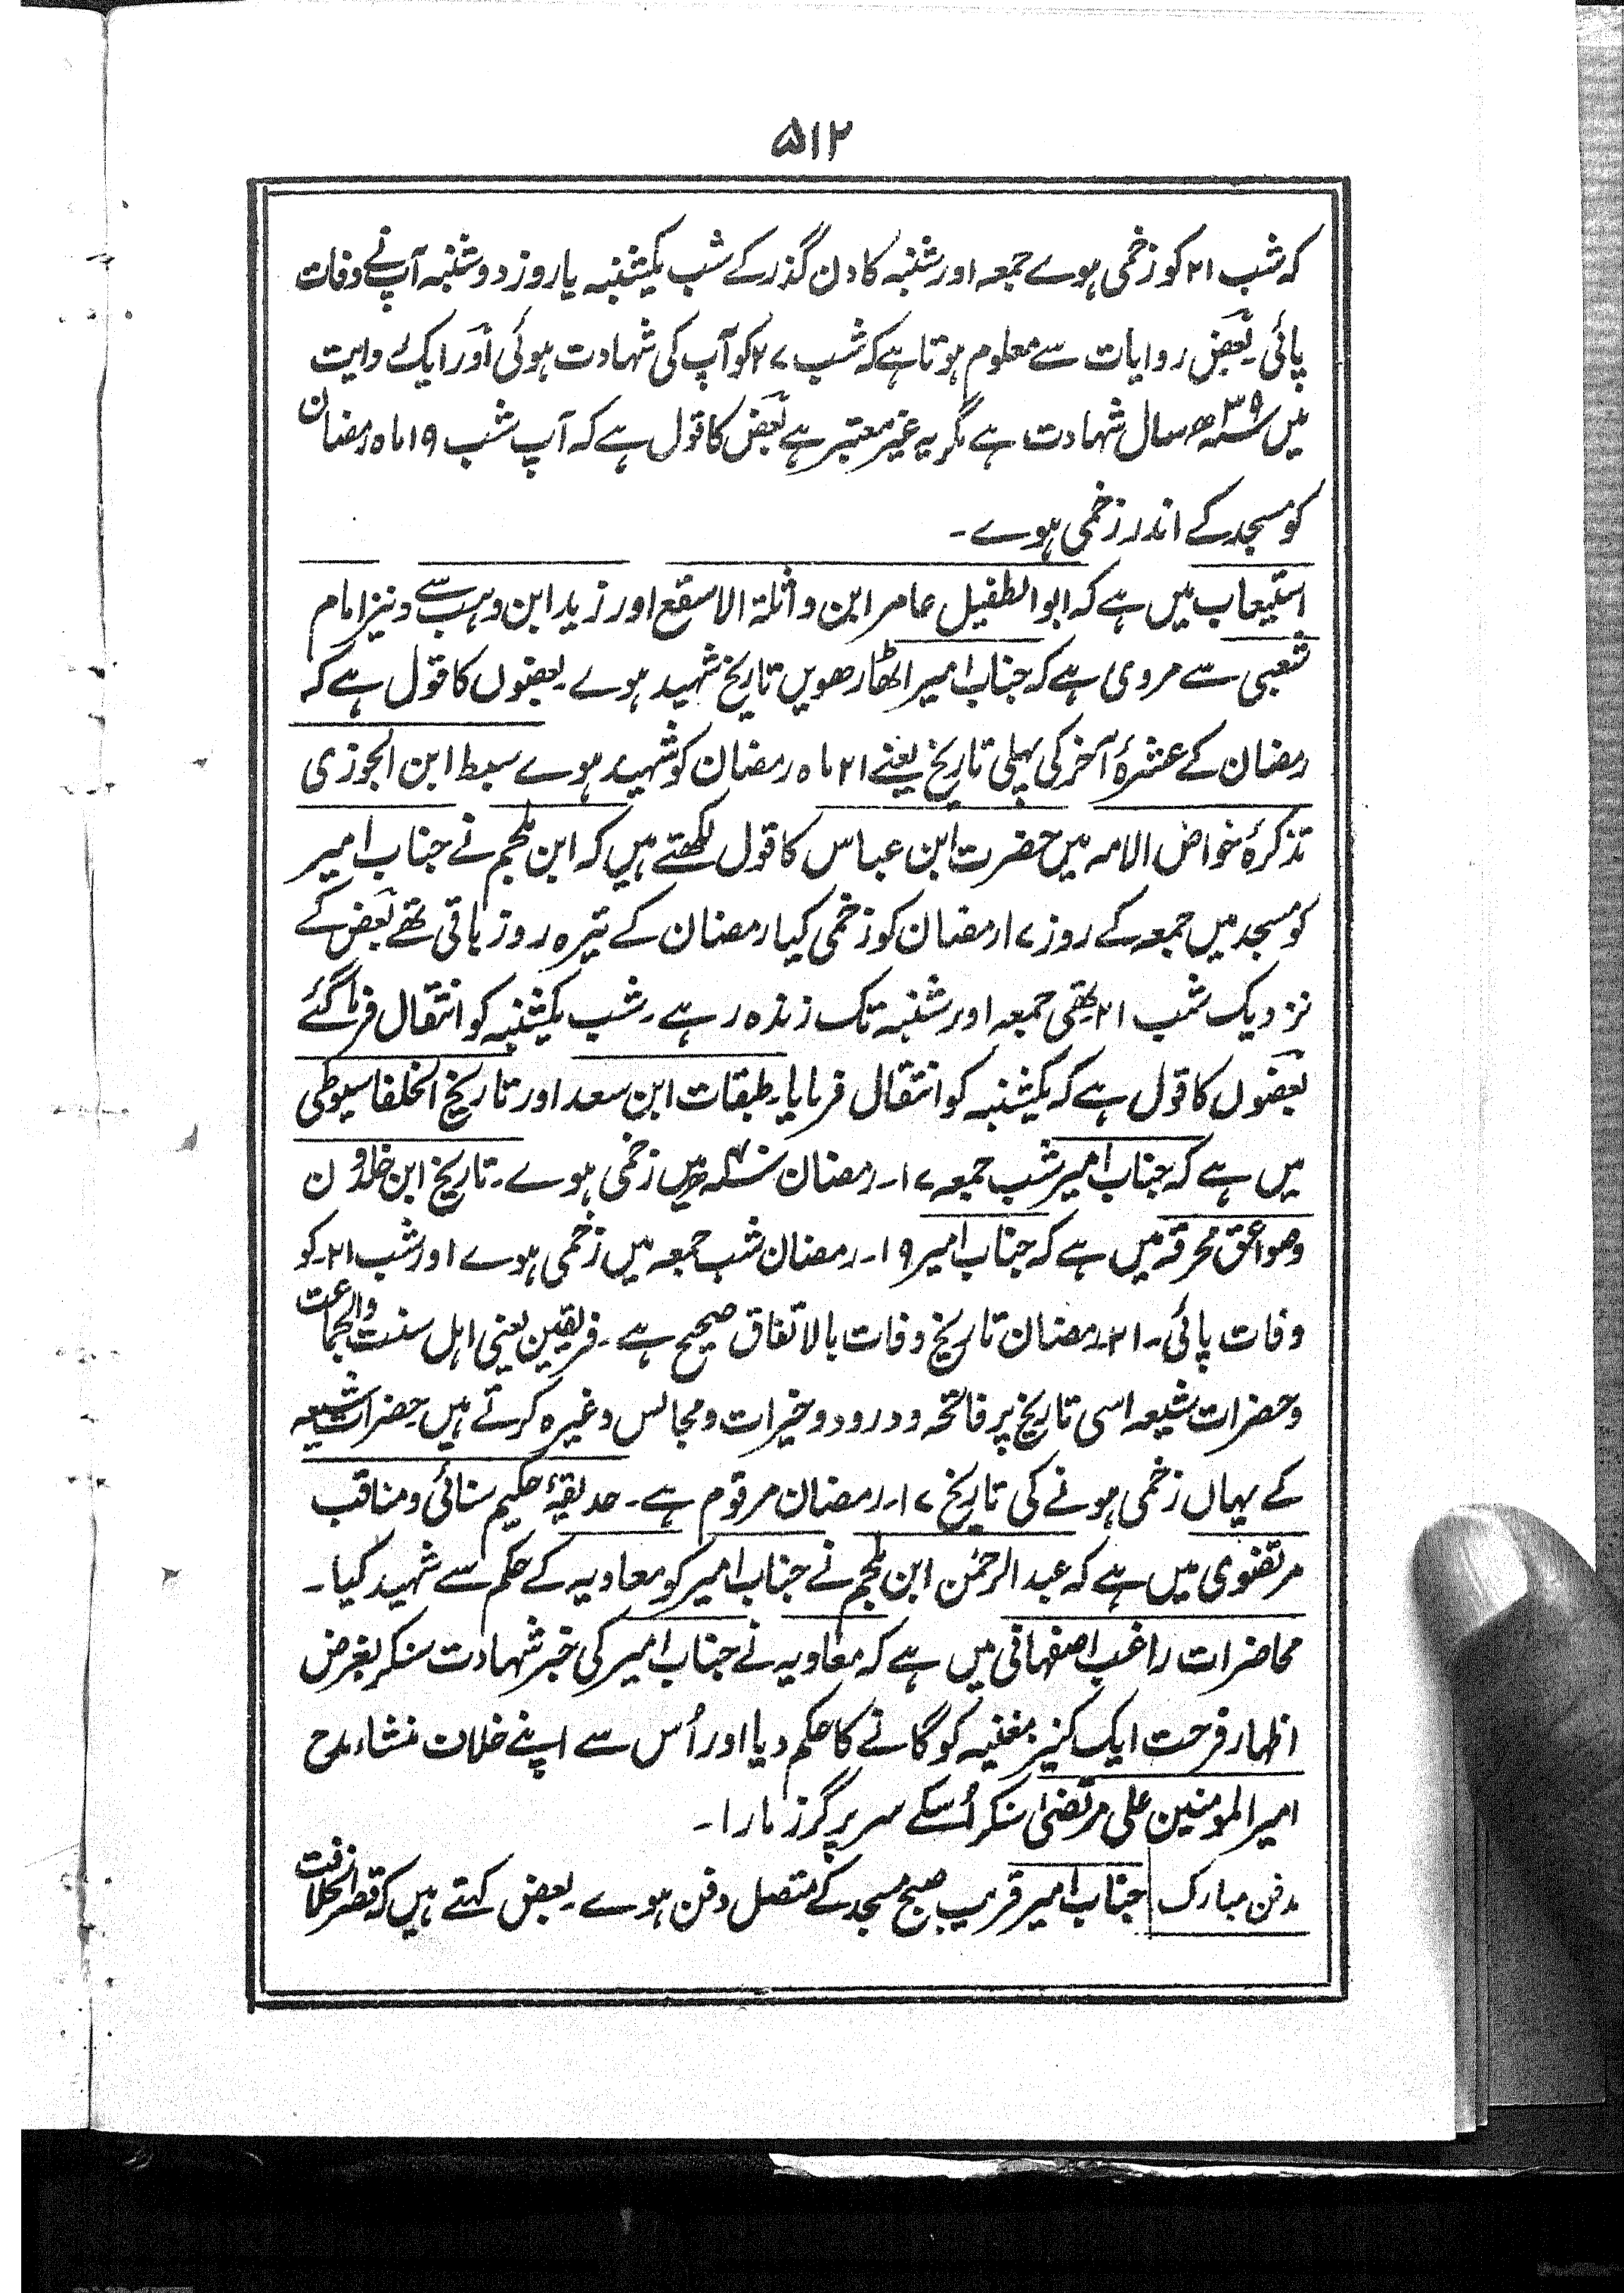 ۵۱۲
کہ شب ۲۱ کو زخمی ہوے جمعہ اور شنبہ کا دن گذر کے شب یکشنبہ یا روز دوشنبہ آپ نے وفات
پائی۔ بعض روایات سے معلوم ہوتا ہے کہ شب ۲۷ کو آپ کی شہادت ہوئی اور ایک روایت
میں ۳۹ھ سال شہادت ہے مگر یہ غیر معتبر ہے بعض کا قول ہے کہ آپ شب ۱۹ ماہ رمضان
کو مسجد کے اندر زخمی ہوے۔
استیعاب میں ہے کہ ابوالطفیل عامر ابن واثلۃ الاسقع اور زید ابن وہب سے و نیز امام
شعبی سے مروی ہے کہ جناب امیر اٹھارھویں تاریخ شہید ہوے۔ بعضوں کا قول ہے کہ
رمضان کے عشرۂ آخر کی پہلی تاریخ یعنے ۲۱ ماہ رمضان کو شہید ہوے سبط ابن الجوزی
تذکرۂ خواض الامہ میں حضرت ابن عباس کا قول لکھتے ہیں کہ ابن ملجم نے جناب امیر
کو مسجد میں جمعہ کے روز ۱۷ رمضان کو زخمی کیا رمضان کے تیرہ روز باقی تھے بعض کے
نزدیک شب ۲۱ تھی جمعہ اور شنبہ تک زندہ رہے۔ شب یکشنبہ کو انتقال فرما گئے
بعضوں کا قول ہے کہ یکشنبہ کو انتقال فرمایا۔ طبقات ابن سعد اور تاریخ الخلفا سیوطی
میں ہے کہ جناب امیر شب جمعہ ۱۷۔ رمضان ۴۰ھ میں زخمی ہوے۔ تاریخ ابن خلدون
و صواعق محرقہ میں ہے کہ جناب امیر ۱۹۔ رمضان شب جمعہ میں زخمی ہوے اور شب ۲۱۔ کو
وفات پائی۔ ۲۱۔ رمضان تاریخ وفات بالاتفاق صحیح ہے۔ فریقین یعنی اہل سنت والجماعت
و حضرات شیعہ اسی تاریخ پر فاتحہ و درود و خیرات و مجالس وغیرہ کرتے ہیں حضرات شیعہ
کے یہاں زخمی ہونے کی تاریخ ۱۷۔ رمضان مرقوم ہے۔ حدیقۂ حکیم سنائی و مناقب
مرتضوی میں ہے کہ عبد الرحمٰن ابن ملجم نے جناب امیر کو معاویہ کے حکم سے شہید کیا۔
محاضرات راغب اصفہانی میں ہے کہ معاویہ نے جناب امیر کی خبر شہادت سنکر بغرض
اظہار فرحت ایک کنیز مغنیہ کو گانے کا حکم دیا اور اُس سے اپنے خلاف منشاء مدح
امیر المومنین علی مرتضیٰ سنکر اُسکے سر پر گرز مارا۔
مدفن مبارک جناب امیر قریب صبح مسجد کے متصل دفن ہوے۔ بعض کہتے ہیں کہ قصر الخلافت